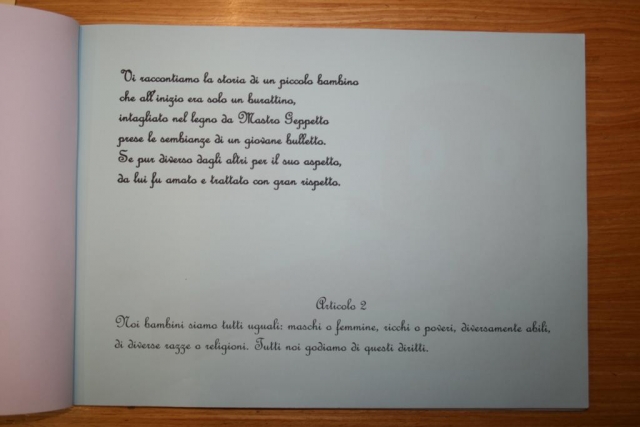 Vi raccontiamo la storia di un piccolo bambino
che all'inizio era solo un burattino,
intagliato nel legno da Mastro Geppetto
prese le sembianze di un giovane bulletto.
Se pur diverso dagli altri per il suo aspetto,
da lui fu amato e trattato con gran rispetto.
Articolo 2
Noi bambini siamo tutti uguali: maschi o femmine, ricchi o poveri, diversamente abili,
di diverse razze o religioni. Tutti noi godiamo di questi diritti.